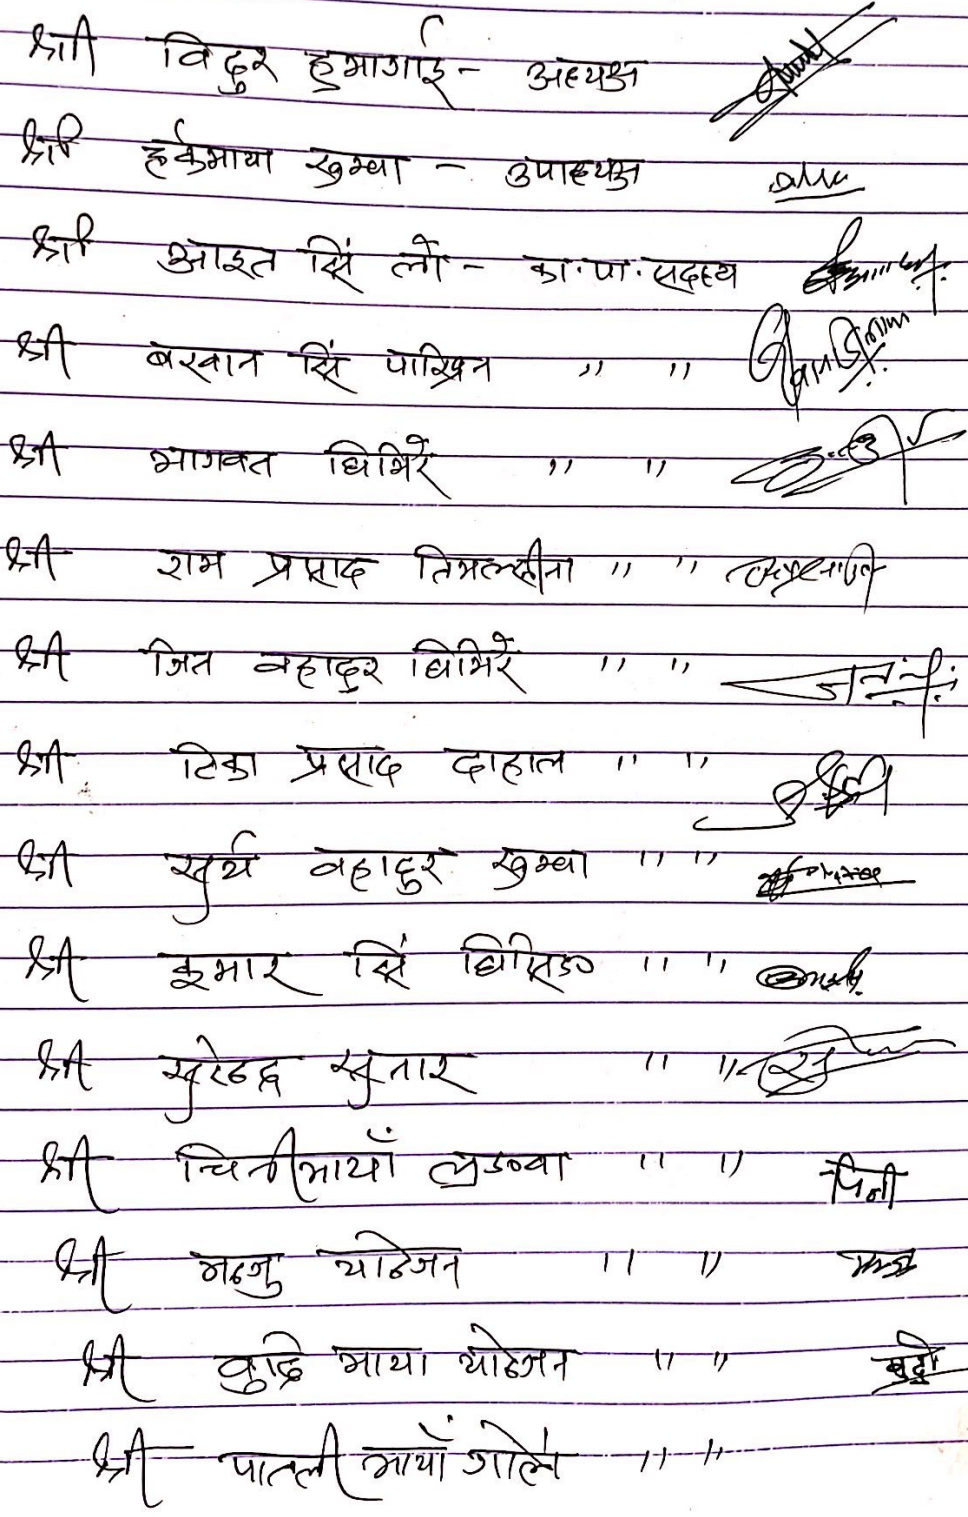 श्री विदुर हुमागाई - अध्यक्ष
श्री हर्कमाया खुम्बा - उपाध्यक्ष
श्री आइत सिं लो - का.पा. सदस्य
श्री बखान सिं पाख्रिन " "
श्री भागवत घिमिरे " "
श्री राम प्रसाद तिमल्सीना " "
श्री जित बहादुर घिमिरे " " जित
श्री टिका प्रसाद दाहाल " "
श्री सुर्य बहादुर खुम्बा " "
श्री कुमार सिं घिसिङ " "
श्री सुरेन्द्र सुनार " "
श्री चिनीमायाँ लुङबा " " चिनी
श्री मन्जु योन्जन " "
श्री बुद्धि माया योन्जन " " बुद्दी
श्री पातली मायाँ गोले " "